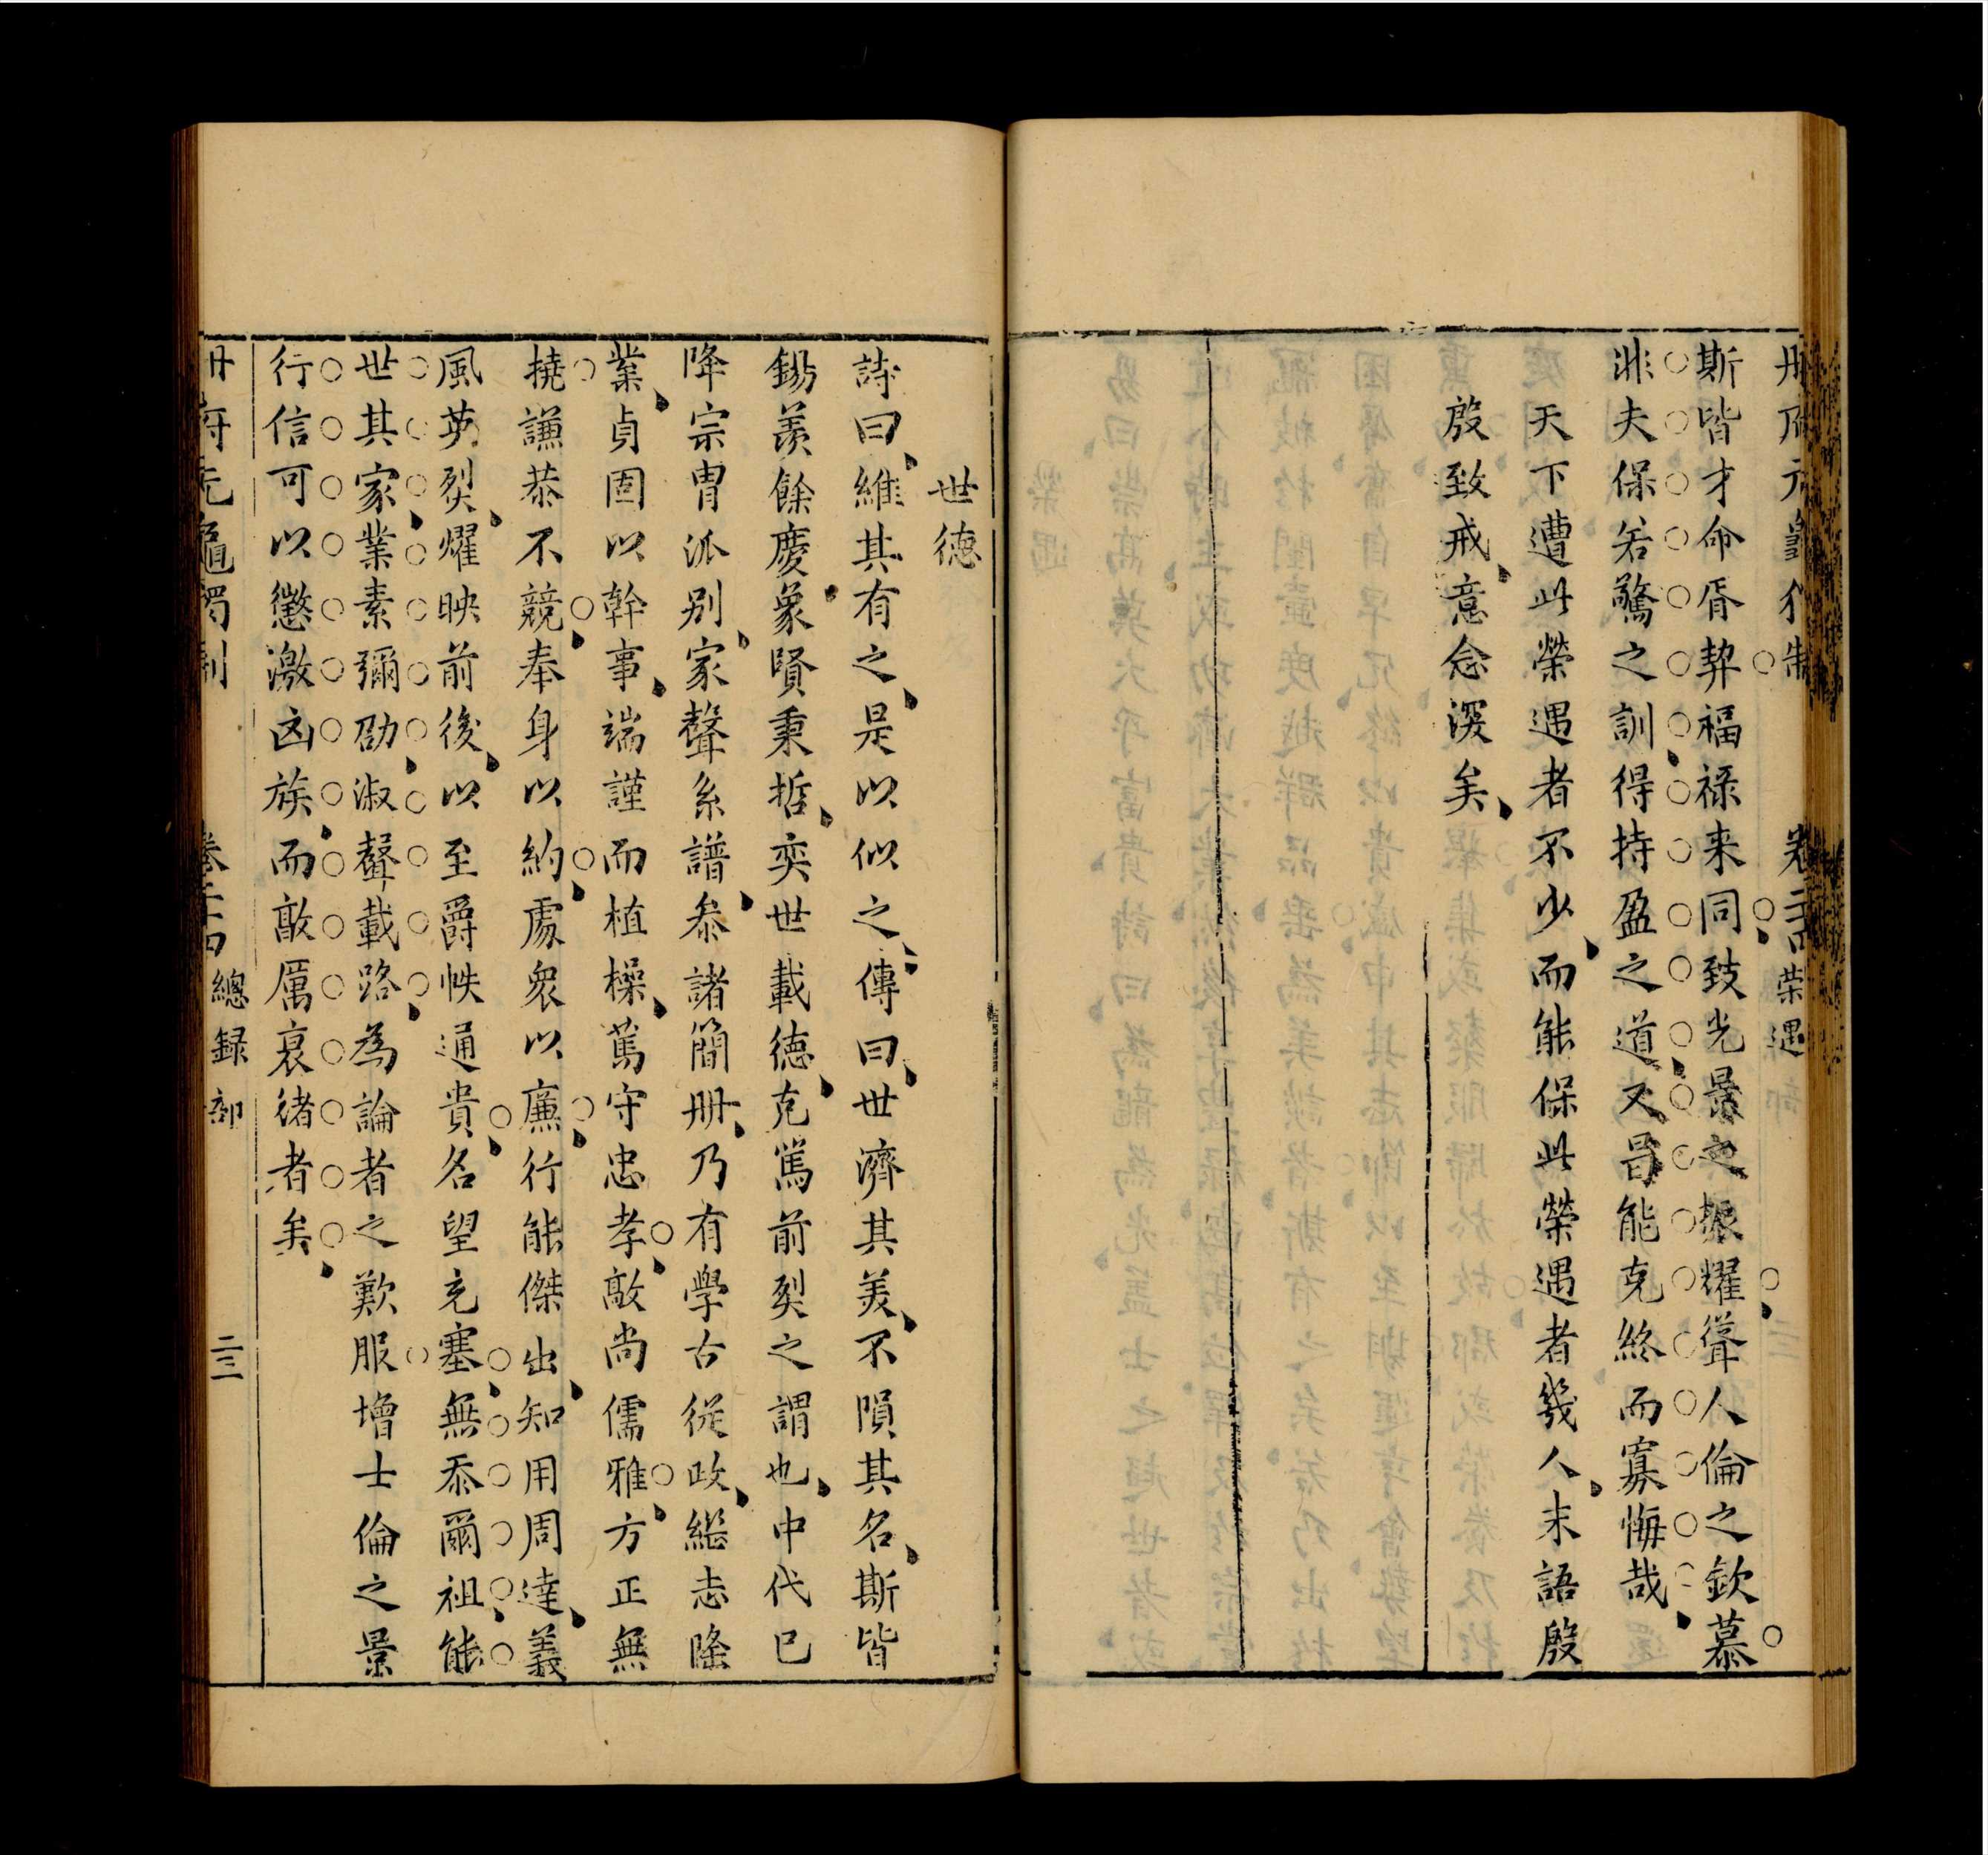 冊府元龜獨制 卷二十四 榮遇
斯皆才命胥契福祿来同致光景之振耀聳人倫之欽慕
非夫保若驚之訓得持盈之道又曷能克終而寡悔哉
天下遭此榮遇者不少而能保此榮遇者幾人末語殷
殷致戒意念深矣
世德
詩曰維其有之是以似之傳曰世濟其美不隕其名斯皆
錫羨餘慶象賢秉哲奕世載德克篤前烈之謂也中代已
降宗冑派别家聲系譜叅諸簡冊乃有學古從政繼志隆
業貞固以幹事端謹而植操篤守忠孝敵尚儒雅方正無
撓謙恭不競奉身以約處衆以廉行能傑出知用周達義
風英烈燿映前後以至爵帙通貴名望充塞無忝爾祖能
世其家業素彌劭淑聲載路為論者之歎服增士倫之景
行信可以懲激凶族而敵厲衰緒者矣
冊府元龜獨制 卷二十四 總録部 二三